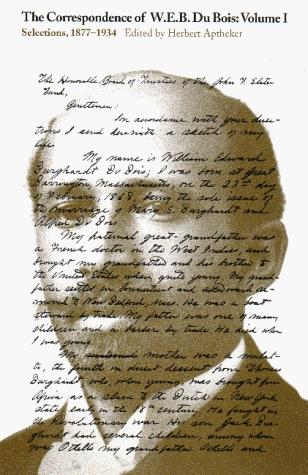 The Correspondence of W.E.B. Du Bois: Volume I
Selections, 1877–1934 Edited by Herbert Aptheker
The Honorable Board of Trustees of the John F. Slater
Fund,
Gentlemen:
In accordance with your direc-
tions I send herewith a sketch of my
life.
My name is William Edward
Burghardt Du Bois; I was born at Great
Barrington, Massachusetts, on the 23rd day
of February, 1868, being the sole issue of
the marriage of Mary S. Burghardt and
Alfred Du Bois.
My paternal great-grandfather was
a French doctor in the West Indies, and
brought my grandfather and his brother to
the United States when quite young. My grand-
father settled in Connecticut and afterward
moved to New Bedford, Mass. He was a boat
steward by trade. My father was one of many
children and a barber by trade. He died when
I was young.
My mother was a mulat-
to, the fourth in direct descent from Thomas
Burghardt who, when young, was bought from
Africa as a slave to the Dutch in New York
state early in the 18th century. He fought in
the Revolutionary war. His son Jack Bur-
ghardt had several children, among whom
was Othello my grandfather. Othello and